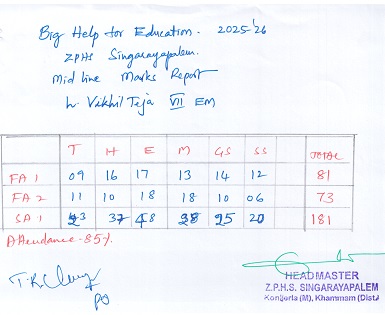 Big Help for Education. 2025-26
ZPHS Singarayapalem.
Mid line Marks Report
L. Vikhil Teja VII EM
T H E M GS SS TOTAL
FA 1 09 16 17 13 14 12 81
FA 2 11 10 18 18 10 06 73
SA 1 23 37 48 28 25 20 181
Attendance-85%
HEADMASTER
Z.P.H.S. SINGARAYAPALEM
Konijerla (M), Khammam (Dist)